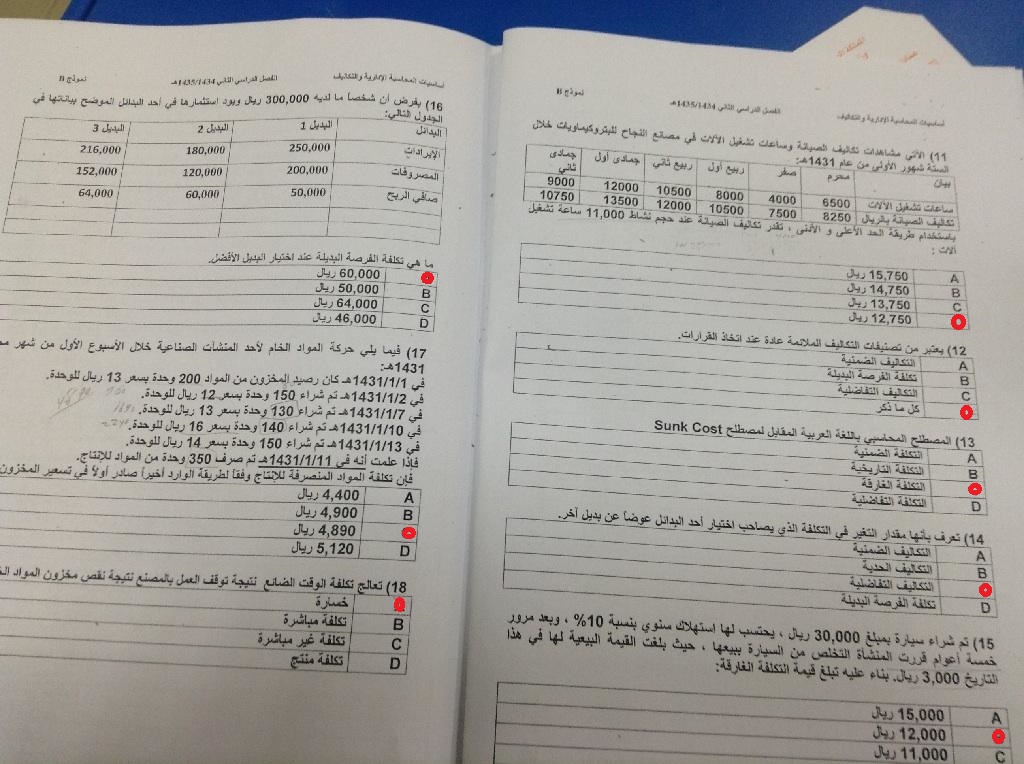 أساسيات المحاسبة الإدارية والتكاليف الفصل الدراسي الثاني 1435/1434هـ نموذج B
11) الآتي مشاهدات تكاليف الصيانة وساعات تشغيل الآلات في مصانع النجاح للبتروكيماويات خلال
الستة شهور الأولى من عام 1431هـ:
بيان محرم صفر ربيع أول ربيع ثاني جمادى أول جمادى ثاني
ساعات تشغيل الآلات 6500 4000 8000 10500 12000 9000
تكاليف الصيانة بالريال 8250 7500 10500 12000 13500 10750
باستخدام طريقة الحد الأعلى و الأدنى ، تقدر تكاليف الصيانة عند حجم نشاط 11,000 ساعة تشغيل
آلات :
A 15,750 ريال
B 14,750 ريال
C 13,750 ريال
12,750 ريال
12) يعتبر من تصنيفات التكاليف الملائمة عادة عند اتخاذ القرارات.
A التكاليف الضمنية
B تكلفة الفرصة البديلة
C التكاليف التفاضلية
كل ما ذكر
13) المصطلح المحاسبي باللغة العربية المقابل لمصطلح Sunk Cost
A التكلفة الضمنية
B التكلفة التاريخية
التكلفة الغارقة
D التكلفة التفاضلية
14) تعرف بأنها مقدار التغير في التكلفة الذي يصاحب اختيار أحد البدائل عوضاً عن بديل آخر.
A التكاليف الضمنية
B التكاليف الحدية
التكاليف التفاضلية
D تكلفة الفرصة البديلة
15) تم شراء سيارة بمبلغ 30,000 ريال ، يحتسب لها استهلاك سنوي بنسبة 10% ، وبعد مرور
خمسة أعوام قررت المنشأة التخلص من السيارة ببيعها ، حيث بلغت القيمة البيعية لها في هذا
التاريخ 3,000 ريال. بناء عليه تبلغ قيمة التكلفة الغارقة:
A 15,000 ريال
12,000 ريال
C 11,000 ريال
أساسيات المحاسبة الإدارية والتكاليف الفصل الدراسي الثاني 1435/1434هـ نموذج B
16) بفرض أن شخصاً ما لديه 300,000 ريال ويود استثمارها في أحد البدائل الموضح بياناتها في
الجدول التالي:
البدائل البديل 1 البديل 2 البديل 3
الإيرادات 250,000 180,000 216,000
المصروفات 200,000 120,000 152,000
صافي الربح 50,000 60,000 64,000
ما هي تكلفة الفرصة البديلة عند اختيار البديل الأفضل.
60,000 ريال
B 50,000 ريال
C 64,000 ريال
D 46,000 ريال
17) فيما يلي حركة المواد الخام لأحد المنشآت الصناعية خلال الأسبوع الأول من شهر
1431هـ:
في 1431/1/1هـ كان رصيد المخزون من المواد 200 وحدة بسعر 13 ريال للوحدة.
في 1431/1/2هـ تم شراء 150 وحدة بسعر 12 ريال للوحدة.
في 1431/1/7هـ تم شراء 130 وحدة بسعر 13 ريال للوحدة.
في 1431/1/10هـ تم شراء 140 وحدة بسعر 16 ريال للوحدة.
في 1431/1/13هـ تم شراء 150 وحدة بسعر 14 ريال للوحدة.
فإذا علمت أنه في 1431/1/11هـ تم صرف 350 وحدة من المواد للإنتاج.
فإن تكلفة المواد المنصرفة للإنتاج وفقاً لطريقة الوارد أخيراً صادر أولاً في تسعير المخزون
A 4,400 ريال
B 4,900 ريال
4,890 ريال
D 5,120 ريال
18) تعالج تكلفة الوقت الضائع نتيجة توقف العمل بالمصنع نتيجة نقص مخزون المواد
خسارة
B تكلفة مباشرة
C تكلفة غير مباشرة
D تكلفة منتج